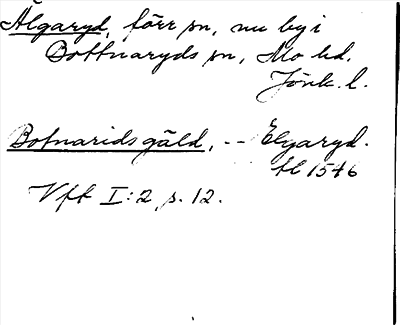 Älgaryd, förr sn, nu by i
Bottnaryds sn, Mo hd.
Jönk. l.
Botnarids gäld, -- Elgaryd.
tl 1546
Vft I:2, s. 12.